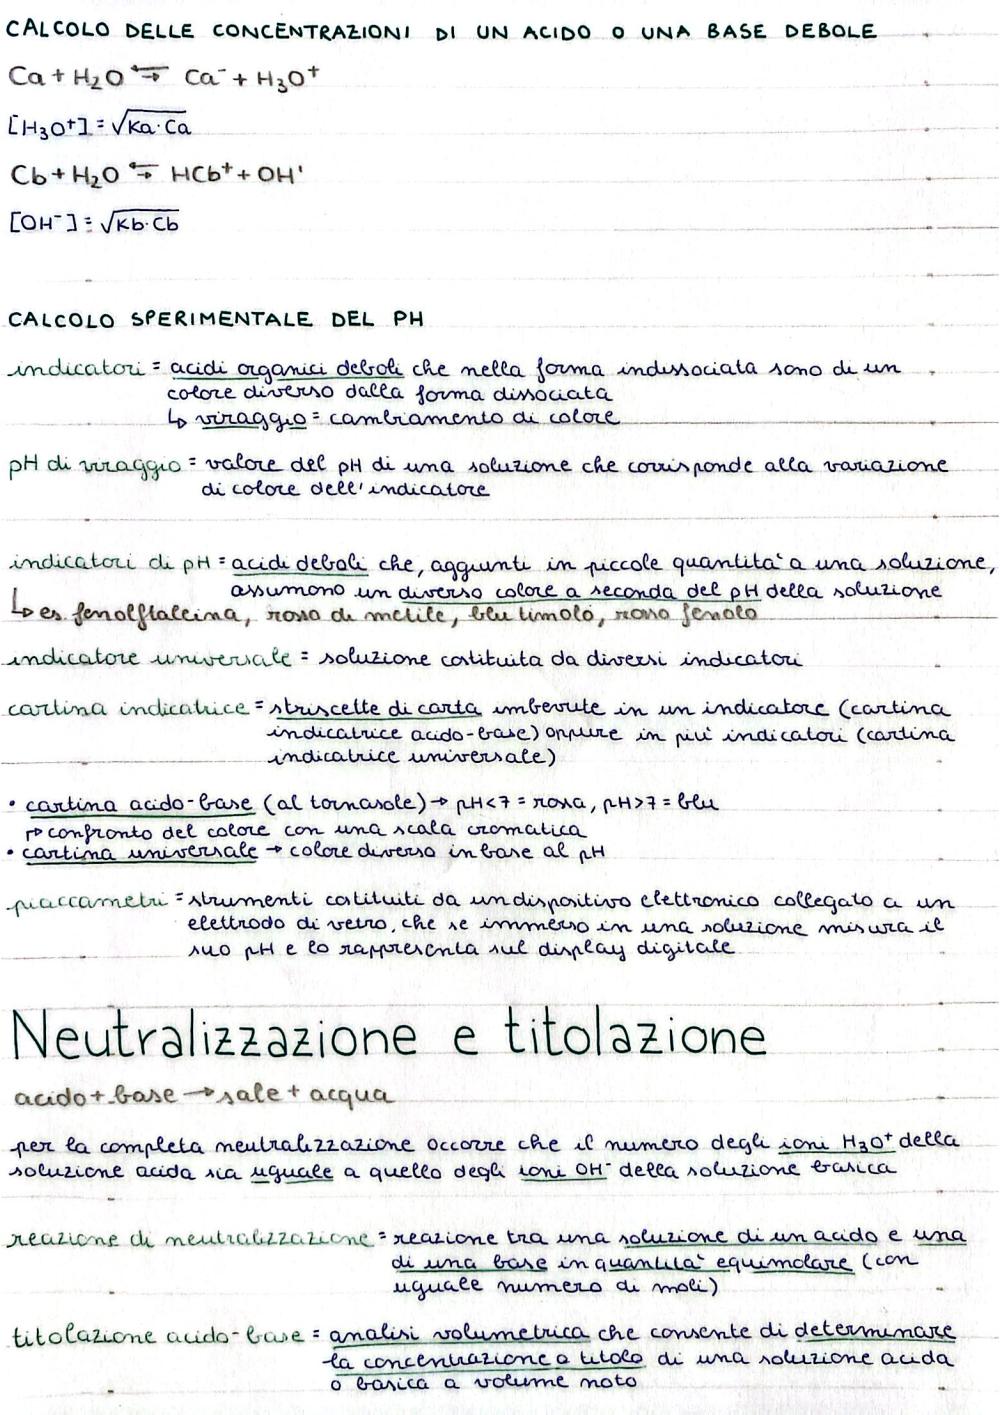 CALCOLO DELLE CONCENTRAZIONI DI UN ACIDO O UNA BASE DEBOLE
Ca + H₂O ⇆ Ca⁻ + H₃O⁺
[H₃O⁺] = √Ka·Ca
Cb + H₂O ⇆ HCb⁺ + OH⁻
[OH⁻] = √Kb·Cb
CALCOLO SPERIMENTALE DEL PH
indicatori = acidi organici deboli che nella forma indissociata sono di un
colore diverso dalla forma dissociata
↳ viraggio = cambiamento di colore
pH di viraggio = valore del pH di una soluzione che corrisponde alla variazione
di colore dell'indicatore
indicatori di pH = acidi deboli che, aggiunti in piccole quantità a una soluzione,
assumono un diverso colore a seconda del pH della soluzione
↳ es. fenolftaleina, rosso di metile, blu timolo, rosso fenolo
indicatore universale = soluzione costituita da diversi indicatori
cartina indicatrice = striscette di carta imbevute in un indicatore (cartina
indicatrice acido-base) oppure in più indicatori (cartina
indicatrice universale)
• cartina acido-base (al tornasole) → pH<7 = rossa, pH>7 = blu
↱ confronto del colore con una scala cromatica
• cartina universale → colore diverso in base al pH
piaccametri = strumenti costituiti da un dispositivo elettronico collegato a un
elettrodo di vetro, che se immerso in una soluzione misura il
suo pH e lo rappresenta sul display digitale
Neutralizzazione e titolazione
acido + base → sale + acqua
per la completa neutralizzazione occorre che il numero degli ioni H₃O⁺ della
soluzione acida sia uguale a quello degli ioni OH⁻ della soluzione basica
reazione di neutralizzazione = reazione tra una soluzione di un acido e una
di una base in quantità equimolare (con
uguale numero di moli)
titolazione acido-base = analisi volumetrica che consente di determinare
la concentrazione o titolo di una soluzione acida
o basica a volume noto